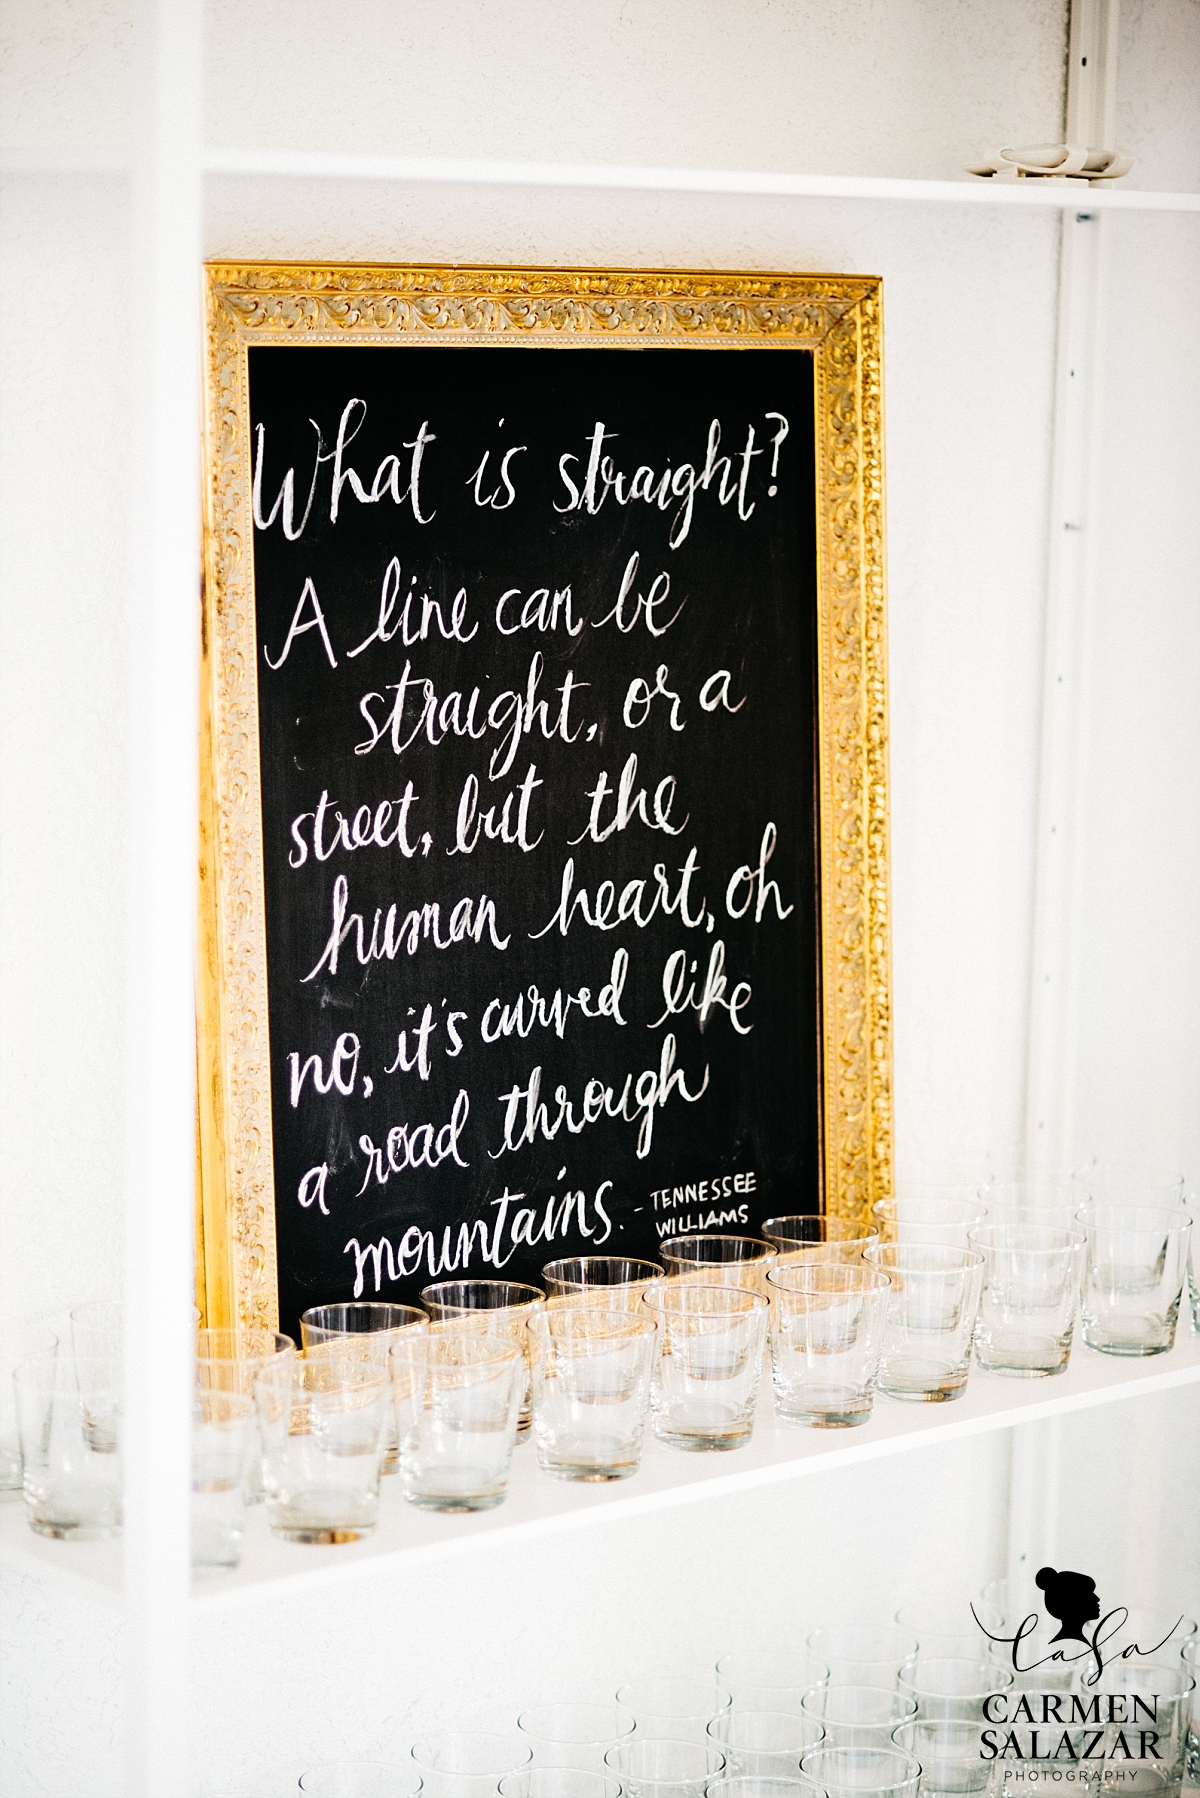 What is straight?
A line can be
straight, or a
street, but the
human heart, oh
no, it's curved like
a road through
mountains. - TENNESSEE
WILLIAMS
Casa
CARMEN
SALAZAR
PHOTOGRAPHY